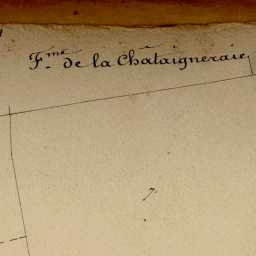 Fme de la Chataigneraie
7.